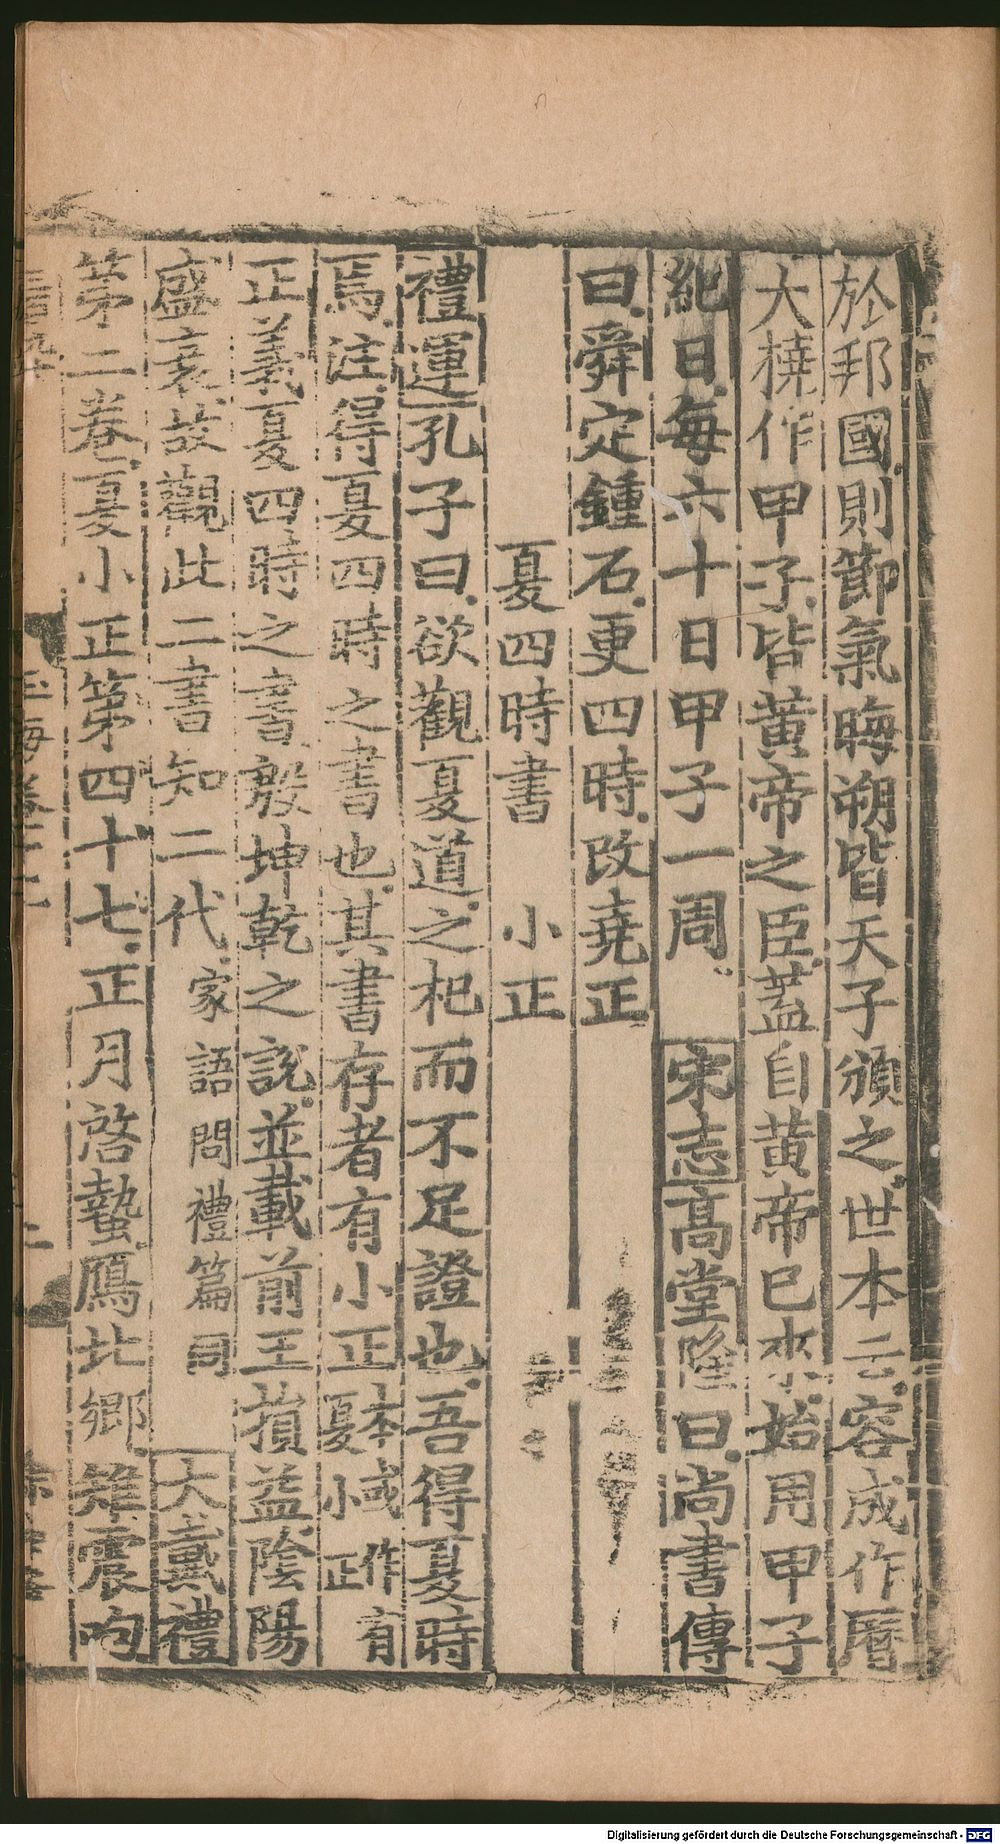 於邦國則節氣晦朔皆天子頒之世本云容成作曆
大橈作甲子皆黃帝之臣蓋自黃帝已來始用甲子
紀日每六十日甲子一周 宋志高堂隆曰尚書傳
曰舜定鍾石更四時改堯正
夏四時書 小正
禮運孔子曰欲觀夏道之杞而不足證也吾得夏時
焉注得夏四時之書也其書存者有小正本或作有夏小正
正義夏四時之書殷坤乾之說並載前王損益陰陽
盛衰故觀此二書知二代家語問禮篇同 大戴禮
第二卷夏小正第四十七正月啓蟄鴈北鄉雉震呴
玉海卷十二
Digitalisierung gefördert durch die Deutsche Forschungsgemeinschaft - DFG